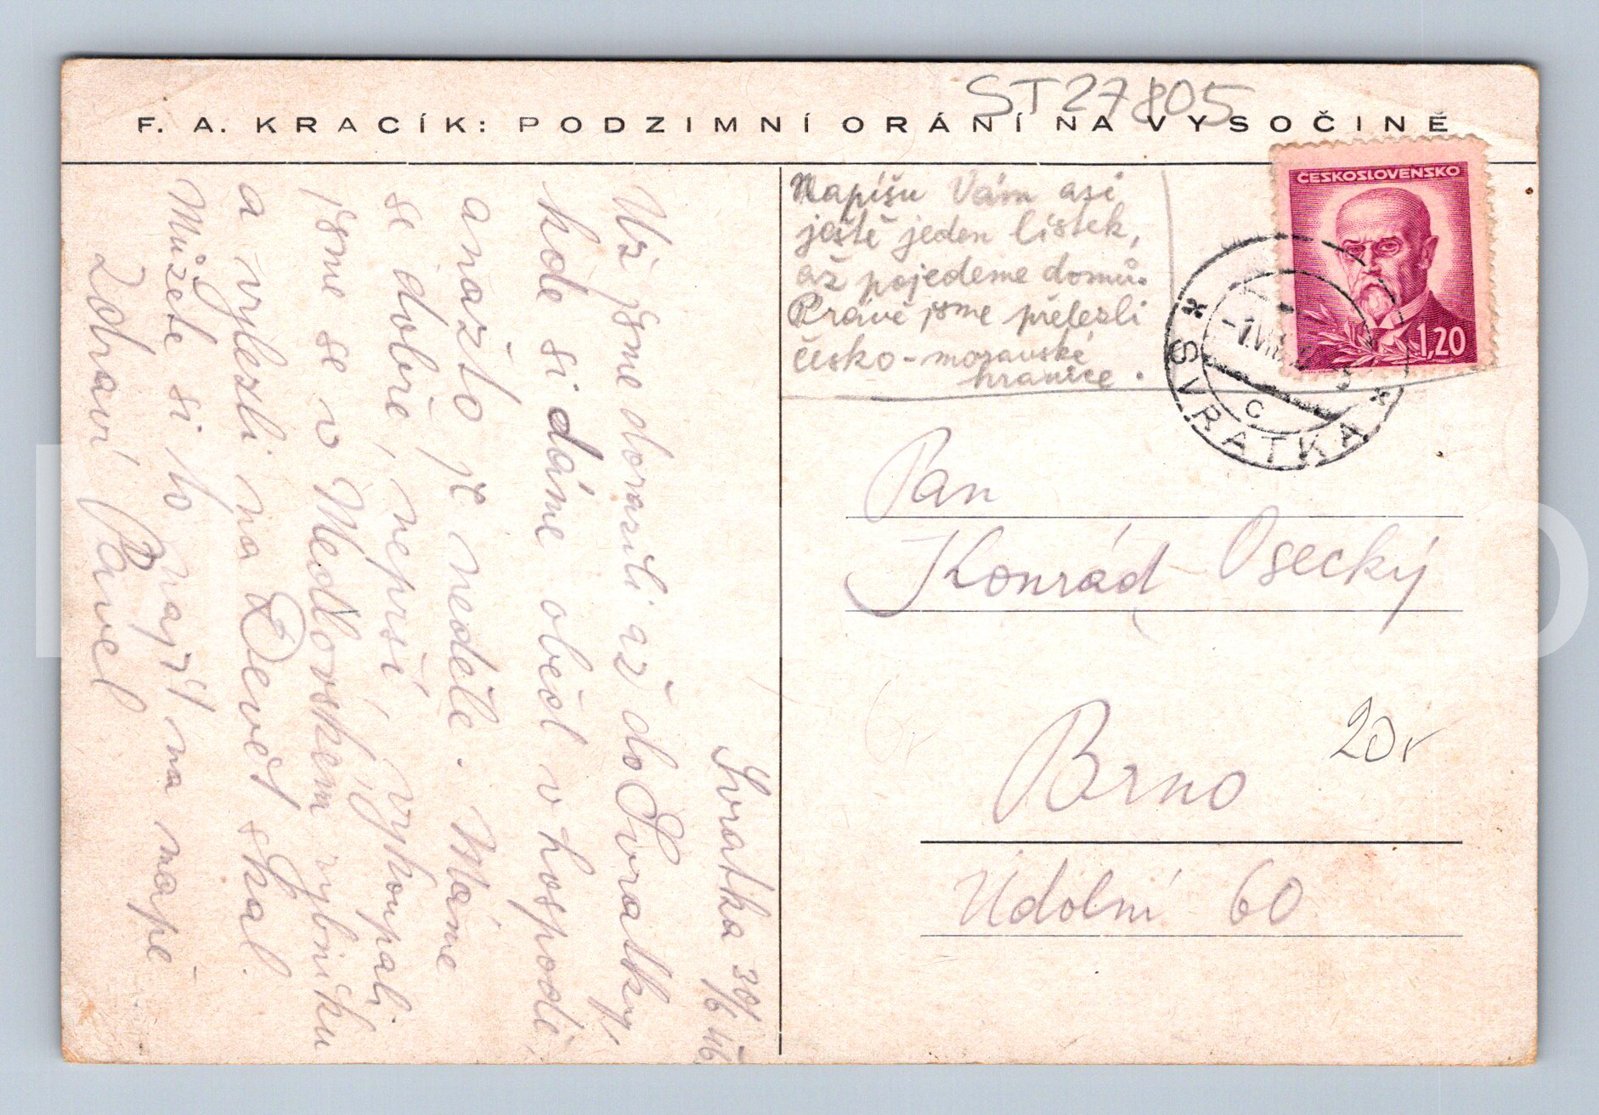 ST27805
F. A. KRACÍK: PODZIMNÍ ORÁNÍ NA VYSOČINĚ
ČESKOSLOVENSKO
1,20
SVRATKA
C
Napíšu Vám asi
ještě jeden lístek,
až pojedeme domů.
Právě jsme přelezli
česko-moravské
hranice.
Pan
Konrád Osecký
Brno
20,-
Údolní 60
Svratka 30/6 46
Už jsme dorazili až do Svratky,
kde si dáme oběd v hospodě,
anažto je neděle. Máme
se dobře, neprší, vykoupali
jsme se v Medlovském rybníku
a vylezli na Devět skal.
Můžete si to najít na mapě.
Zdraví Pavel